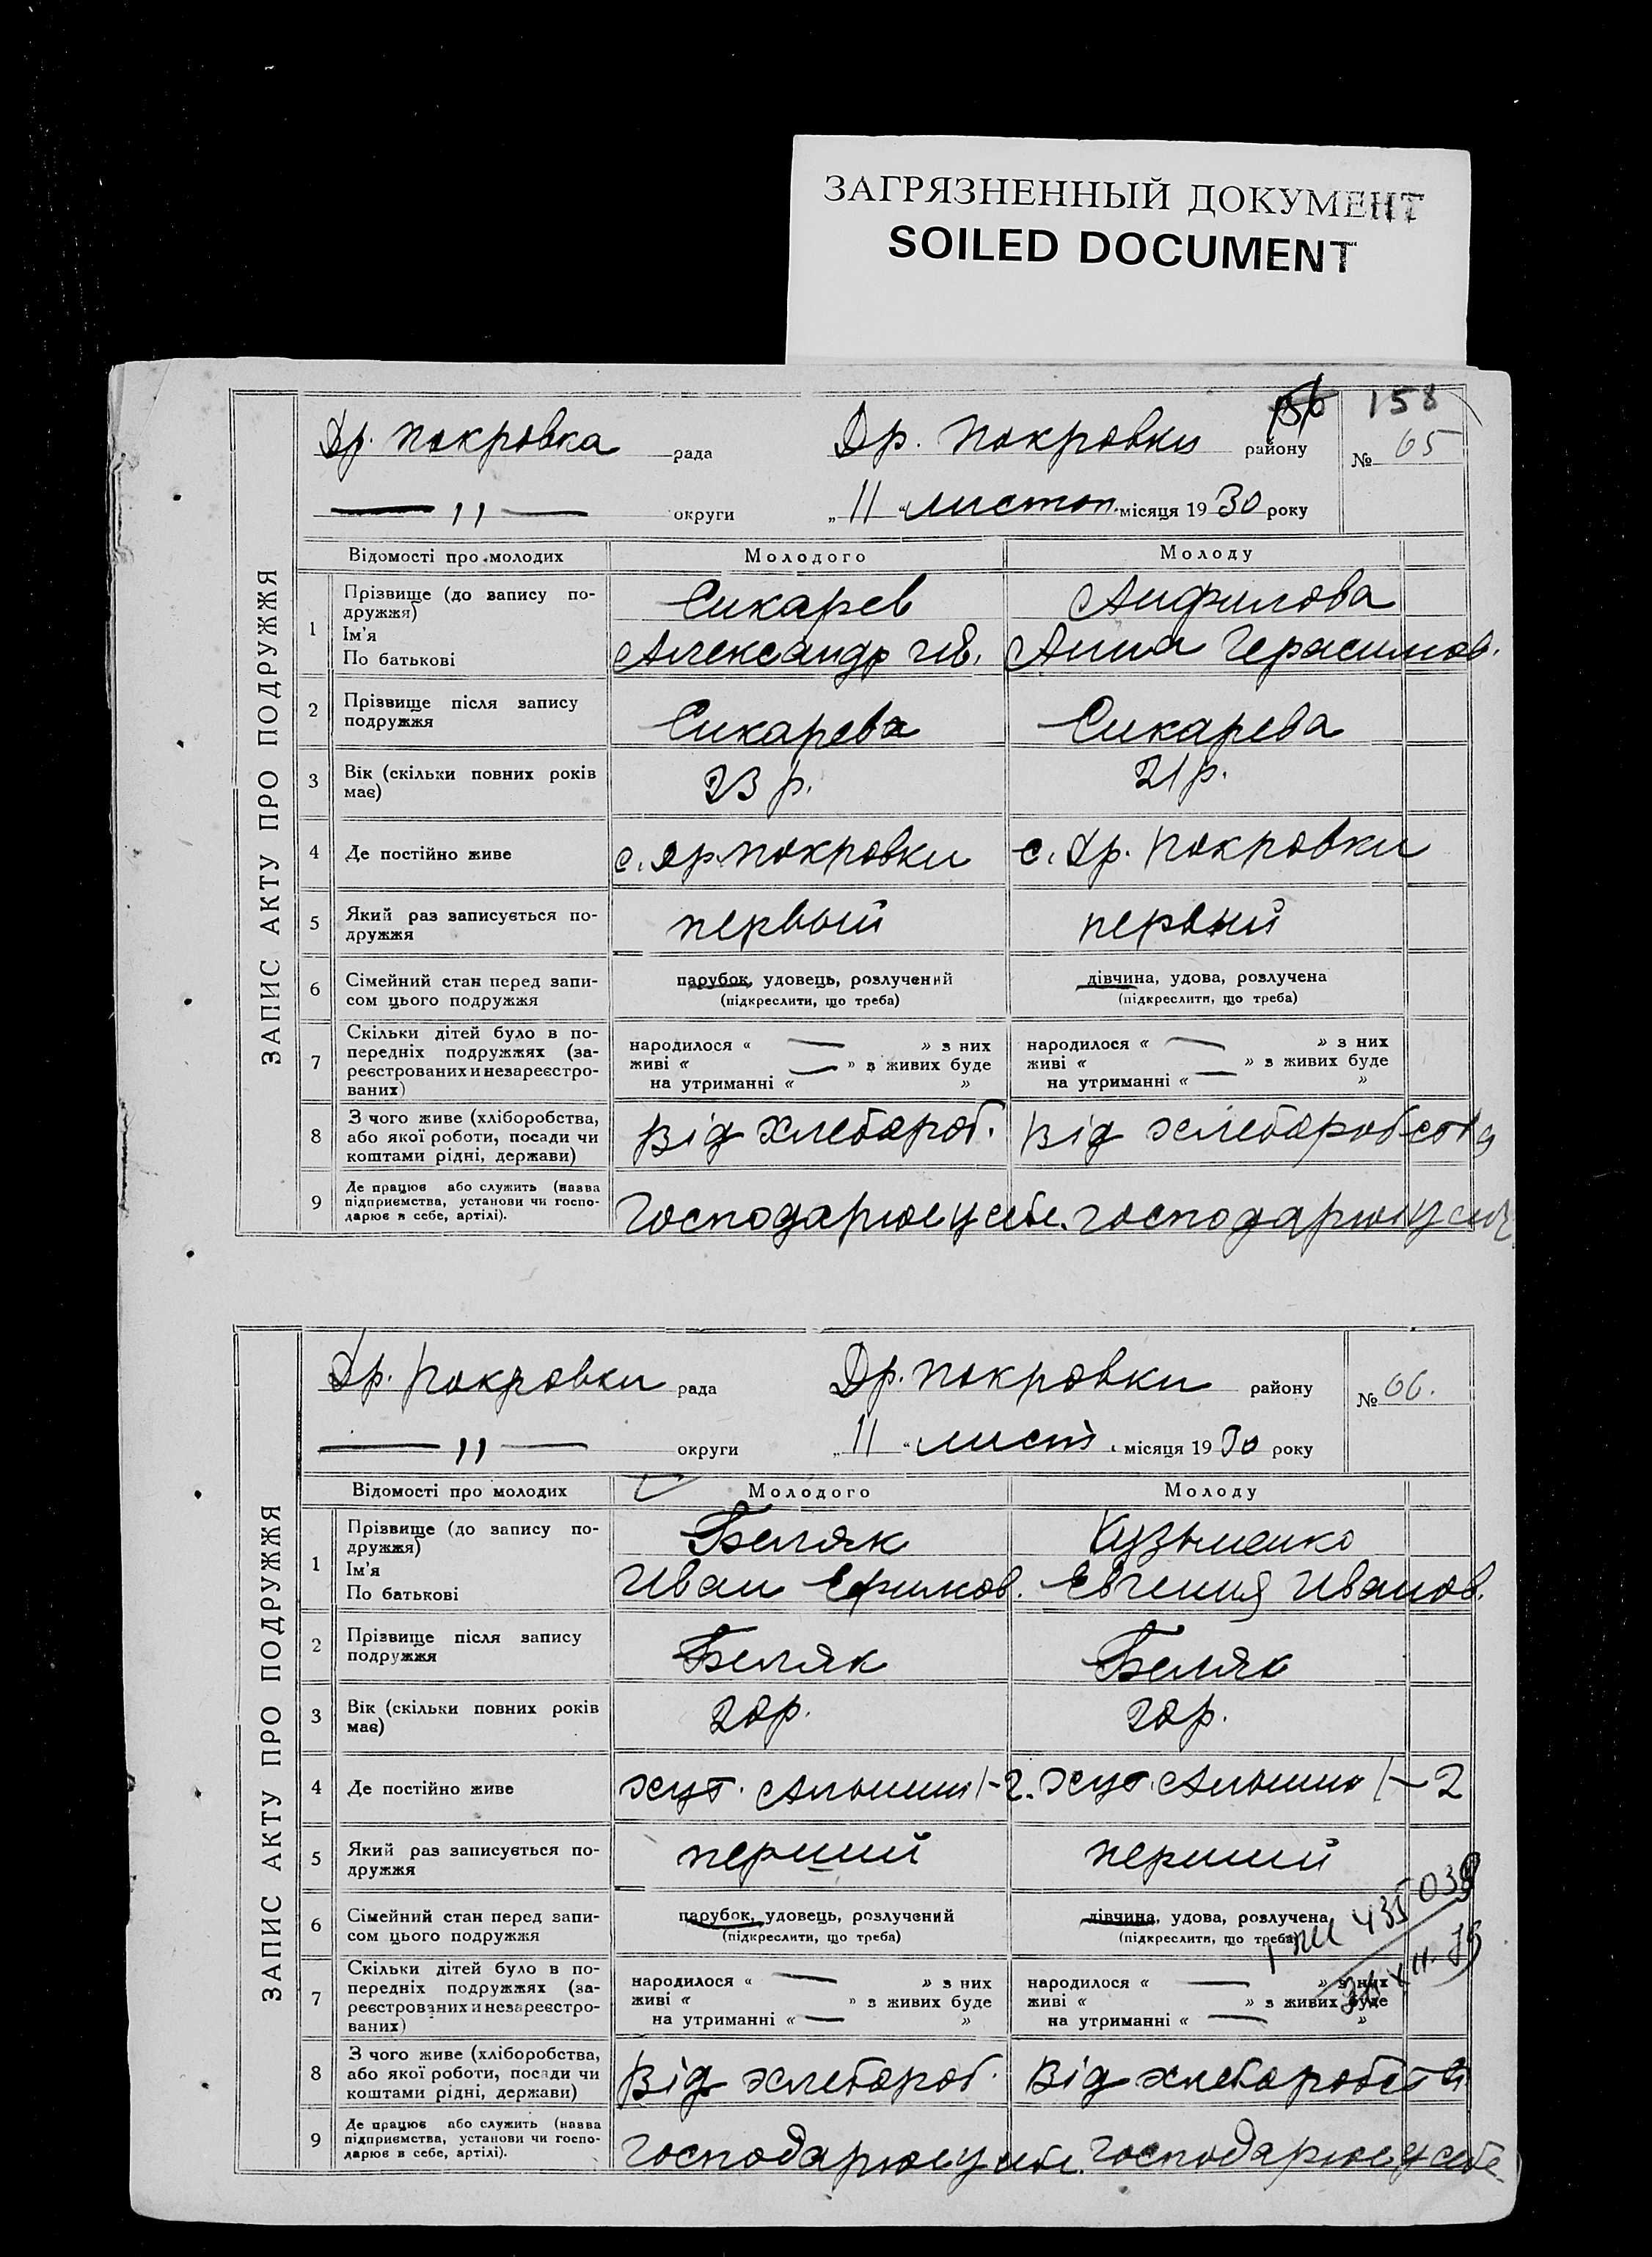 ЗАГРЯЗНЕННЫЙ ДОКУМЕНТ
SOILED DOCUMENT
158
Др. Покровка рада Др. Покровки району № 65
— „ — округи „ 11 “ листоп. місяця 1930 року
ЗАПИС АКТУ ПРО ПОДРУЖЖЯ
Відомості про молодих Молодого Молоду
1 Прізвище (до запису по-
дружжя) Сикарев Анфилова
Ім'я
По батькові Александр Ив. Анна Герасимов.
2 Прізвище після запису
подружжя Сикарева Сикарева
3 Вік (скільки повних років
має) 23 р. 21 р.
4 Де постійно живе с. Др. Покровки с. Др. Покровки
5 Який раз записується по-
дружжя первый первий
6 Сімейний стан перед запи-
сом цього подружжя парубок, удовець, розлучений дівчина, удова, розлучена
(підкреслити, що треба) (підкреслити, що треба)
7 Скільки дітей було в по-
передніх подружжях (за-
реєстрованих и незареєстро-
ваних)
народилося « — » з них народилося « — » з них
живі « — » в живих буде живі « — » з живих буде
на утриманні « » на утриманні « »
8 З чого живе (хліборобства,
або якої роботи, посади чи
коштами рідні, держави) Від хлебароб. Від хлебаробства
9 Де працює або служить (назва
підприємства, установи чи госпо-
дарює в себе, артілі). Господарює у себе. господарює у себе
Др. Покровки рада Др. Покровки району № 66.
— „ — округи „ 11 “ лист. місяця 1930 року
ЗАПИС АКТУ ПРО ПОДРУЖЖЯ
Відомості про молодих Молодого Молоду
1 Прізвище (до запису по-
дружжя) Беляк Кузьменко
Ім'я
По батькові Иван Ефимов. Евгения Иванов.
2 Прізвище після запису
подружжя Беляк Беляк
3 Вік (скільки повних років
має) 20 р. 20 р.
4 Де постійно живе хут. хут.
5 Який раз записується по-
дружжя перший перший
6 Сімейний стан перед запи-
сом цього подружжя парубок, удовець, розлучений дівчина, удова, розлучена
(підкреслити, що треба) (підкреслити, що треба)
7 Скільки дітей було в по-
передніх подружжях (за-
реєстрованих и незареєстро-
ваних)
народилося « — » з них народилося « — » з них
живі « » з живих буде живі « » з живих буде
на утриманні « — » на утриманні « — »
8 З чого живе (хліборобства,
або якої роботи, посади чи
коштами рідні, держави) Від хлебароб. Від хлебаробства
9 Де працює або служить (назва
підприємства, установи чи госпо-
дарює в себе, артілі). Господарює у себе. Господарює у себе